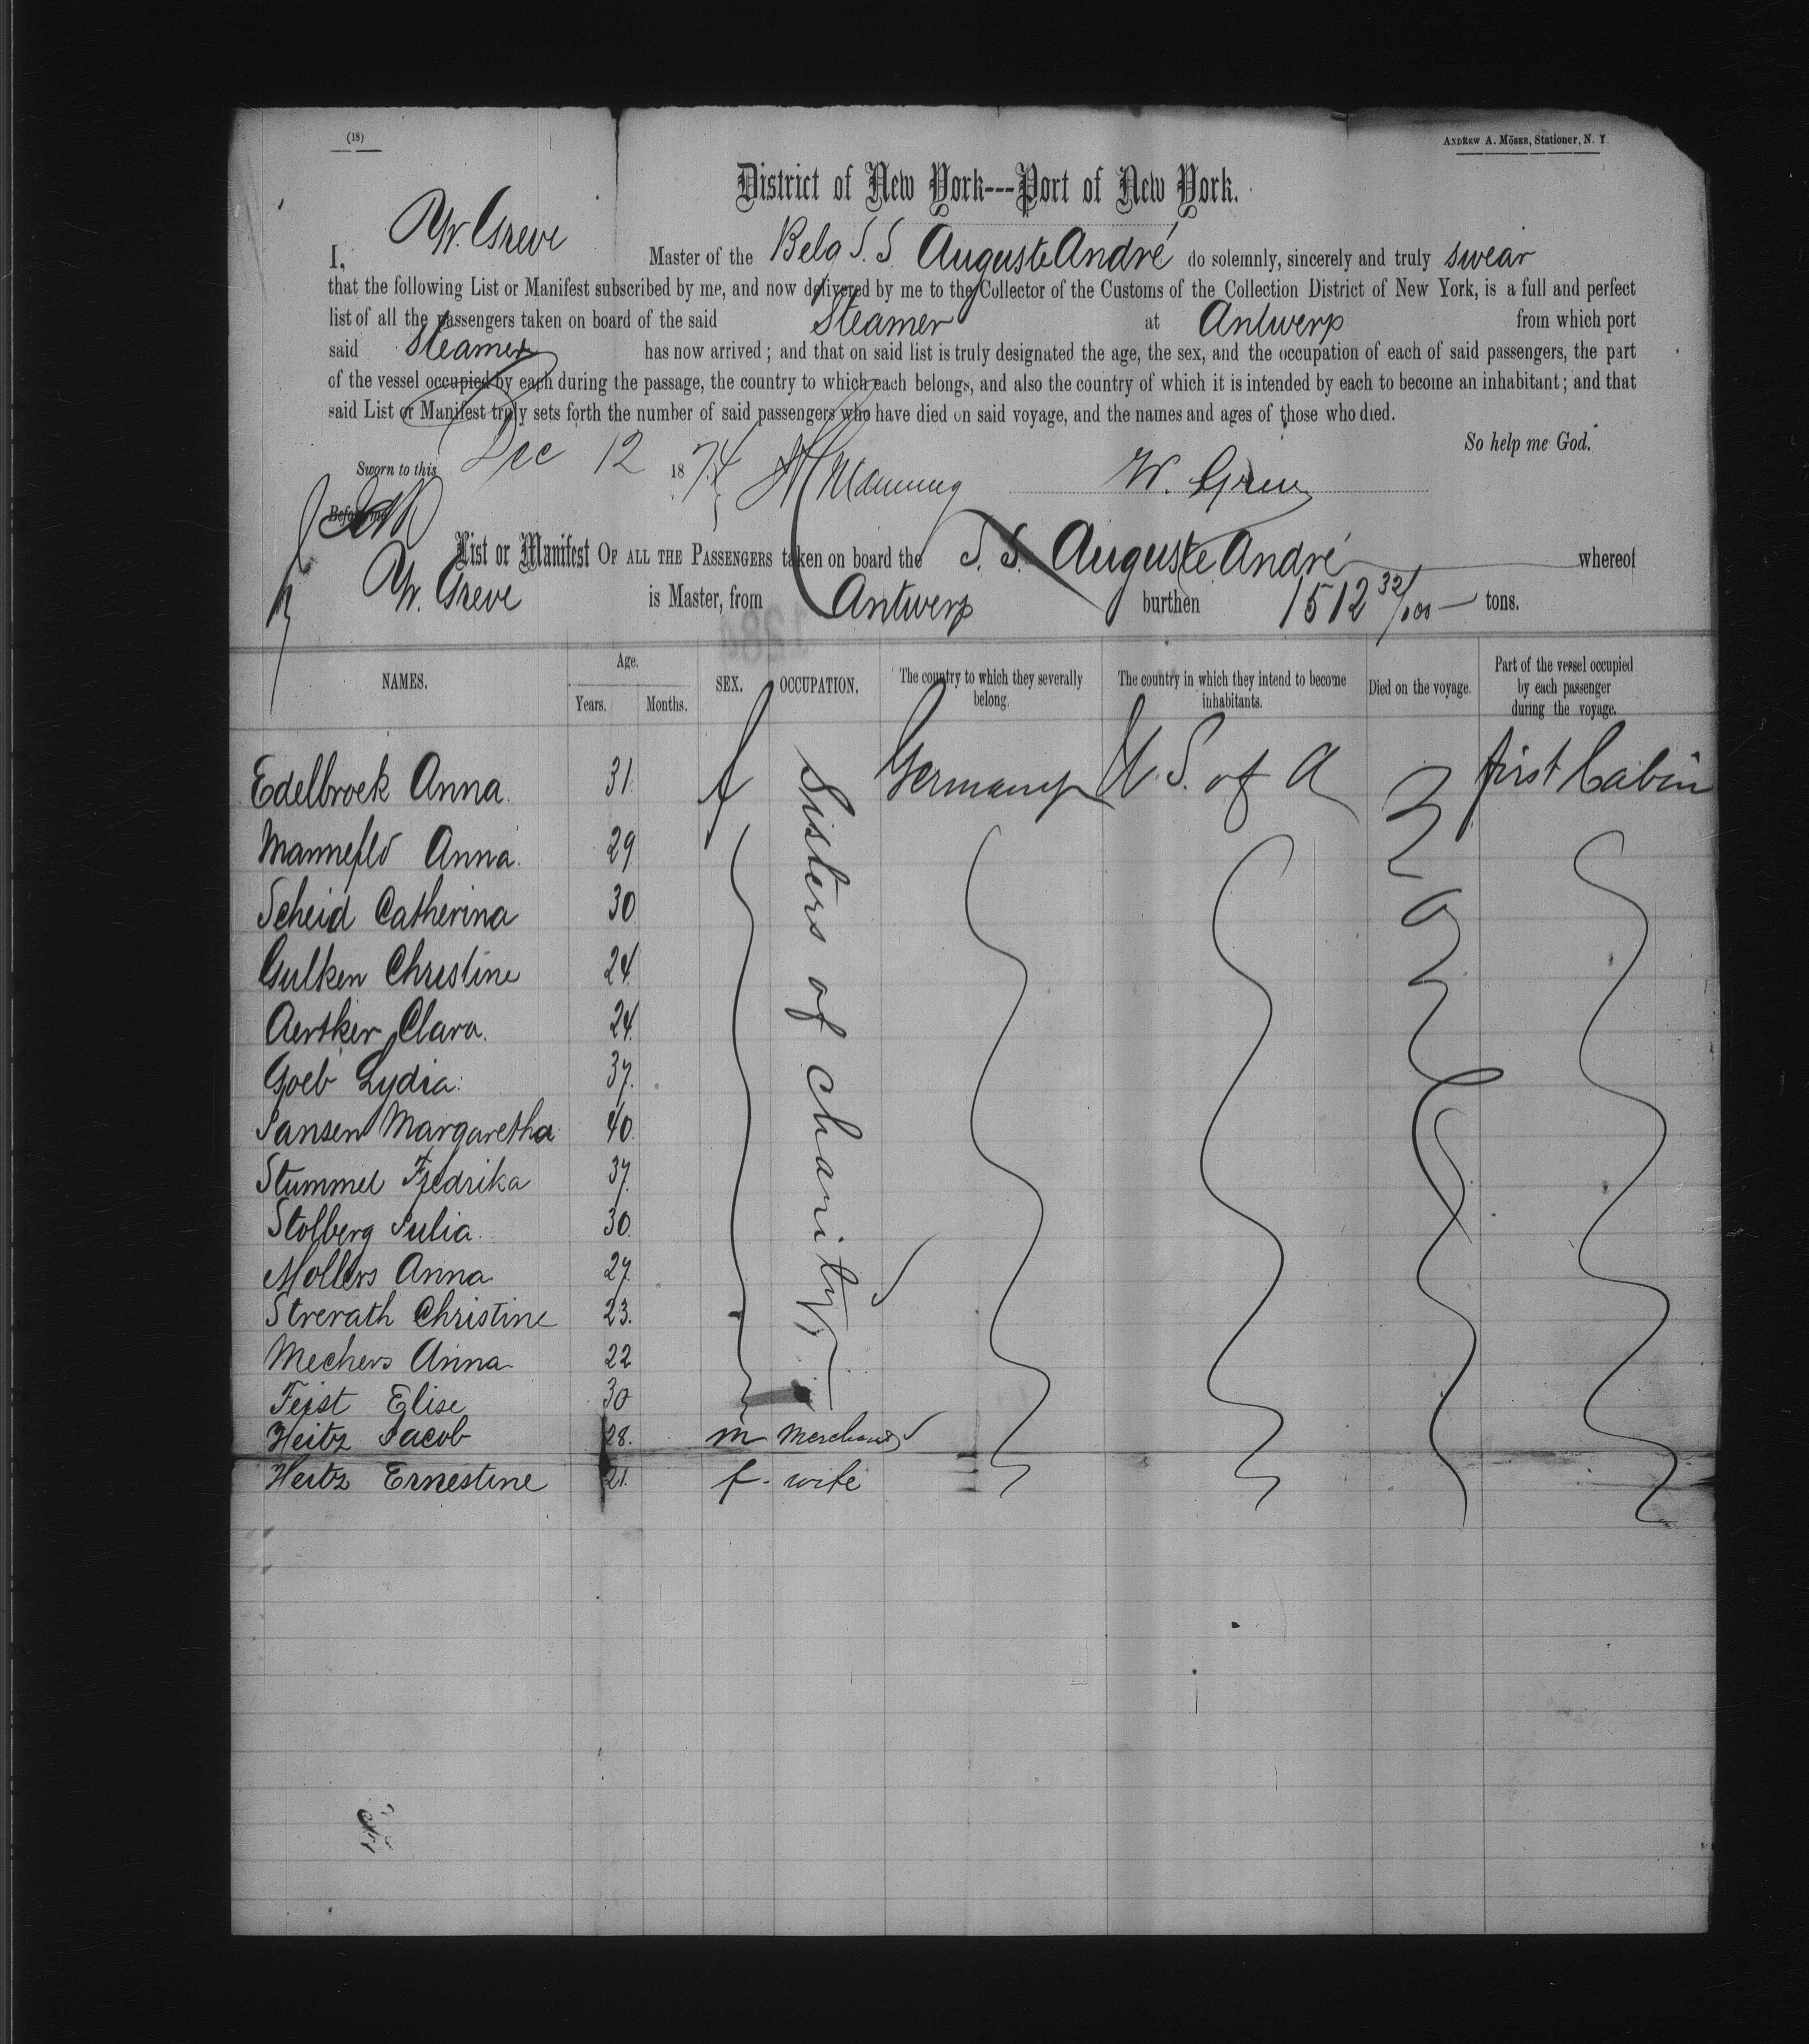 (18)
ANDREW A. MÖSER, Stationer, N. Y.
District of New York---Port of New York.
I, W. Greve Master of the Belg S. S Auguste André do solemnly, sincerely and truly swear
that the following List or Manifest subscribed by me, and now delivered by me to the Collector of the Customs of the Collection District of New York, is a full and perfect
list of all the passengers taken on board of the said Steamer at Antwerp from which port
said Steamer has now arrived ; and that on said list is truly designated the age, the sex, and the occupation of each of said passengers, the part
of the vessel occupied by each during the passage, the country to which each belongs, and also the country of which it is intended by each to become an inhabitant ; and that
said List or Manifest truly sets forth the number of said passengers who have died on said voyage, and the names and ages of those who died.
So help me God.
Sworn to this Dec 12 1874 Manning W. Greve
Before me
List or Manifest OF ALL THE PASSENGERS taken on board the S. S. Auguste André whereof
W. Greve is Master, from Antwerp burthen 1512 32/100 tons.
NAMES. Age. Years. Months. SEX. OCCUPATION. The country to which they severally belong. The country in which they intend to become inhabitants. Died on the voyage. Part of the vessel occupied by each passenger during the voyage.
Edelbroek Anna. 31 f Sisters of charity Germany U. S. of A first Cabin
Manneflo Anna. 29
Scheid Catherina 30
Gulken Christine 24
Aertker Clara. 24.
Goeb Lydia. 37.
Jansen Margaretha 40.
Stummel Fredrika 37.
Stolberg Julia. 30.
Mollers Anna. 27.
Strerath Christine 23.
Mechers Anna. 22
Feist Elise 30
Heitz Jacob 28. m Merchant
Heitz Ernestine 21. f. wife